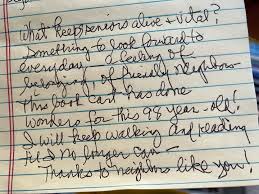 What keeps seniors alive + vital?
Something to look forward to
everyday! A feeling of
belonging! of friends & neighbors
This book cart has done
wonders for this 98 year-old!
I will keep walking and reading
til I no longer can —
Thanks to neighbors like you!